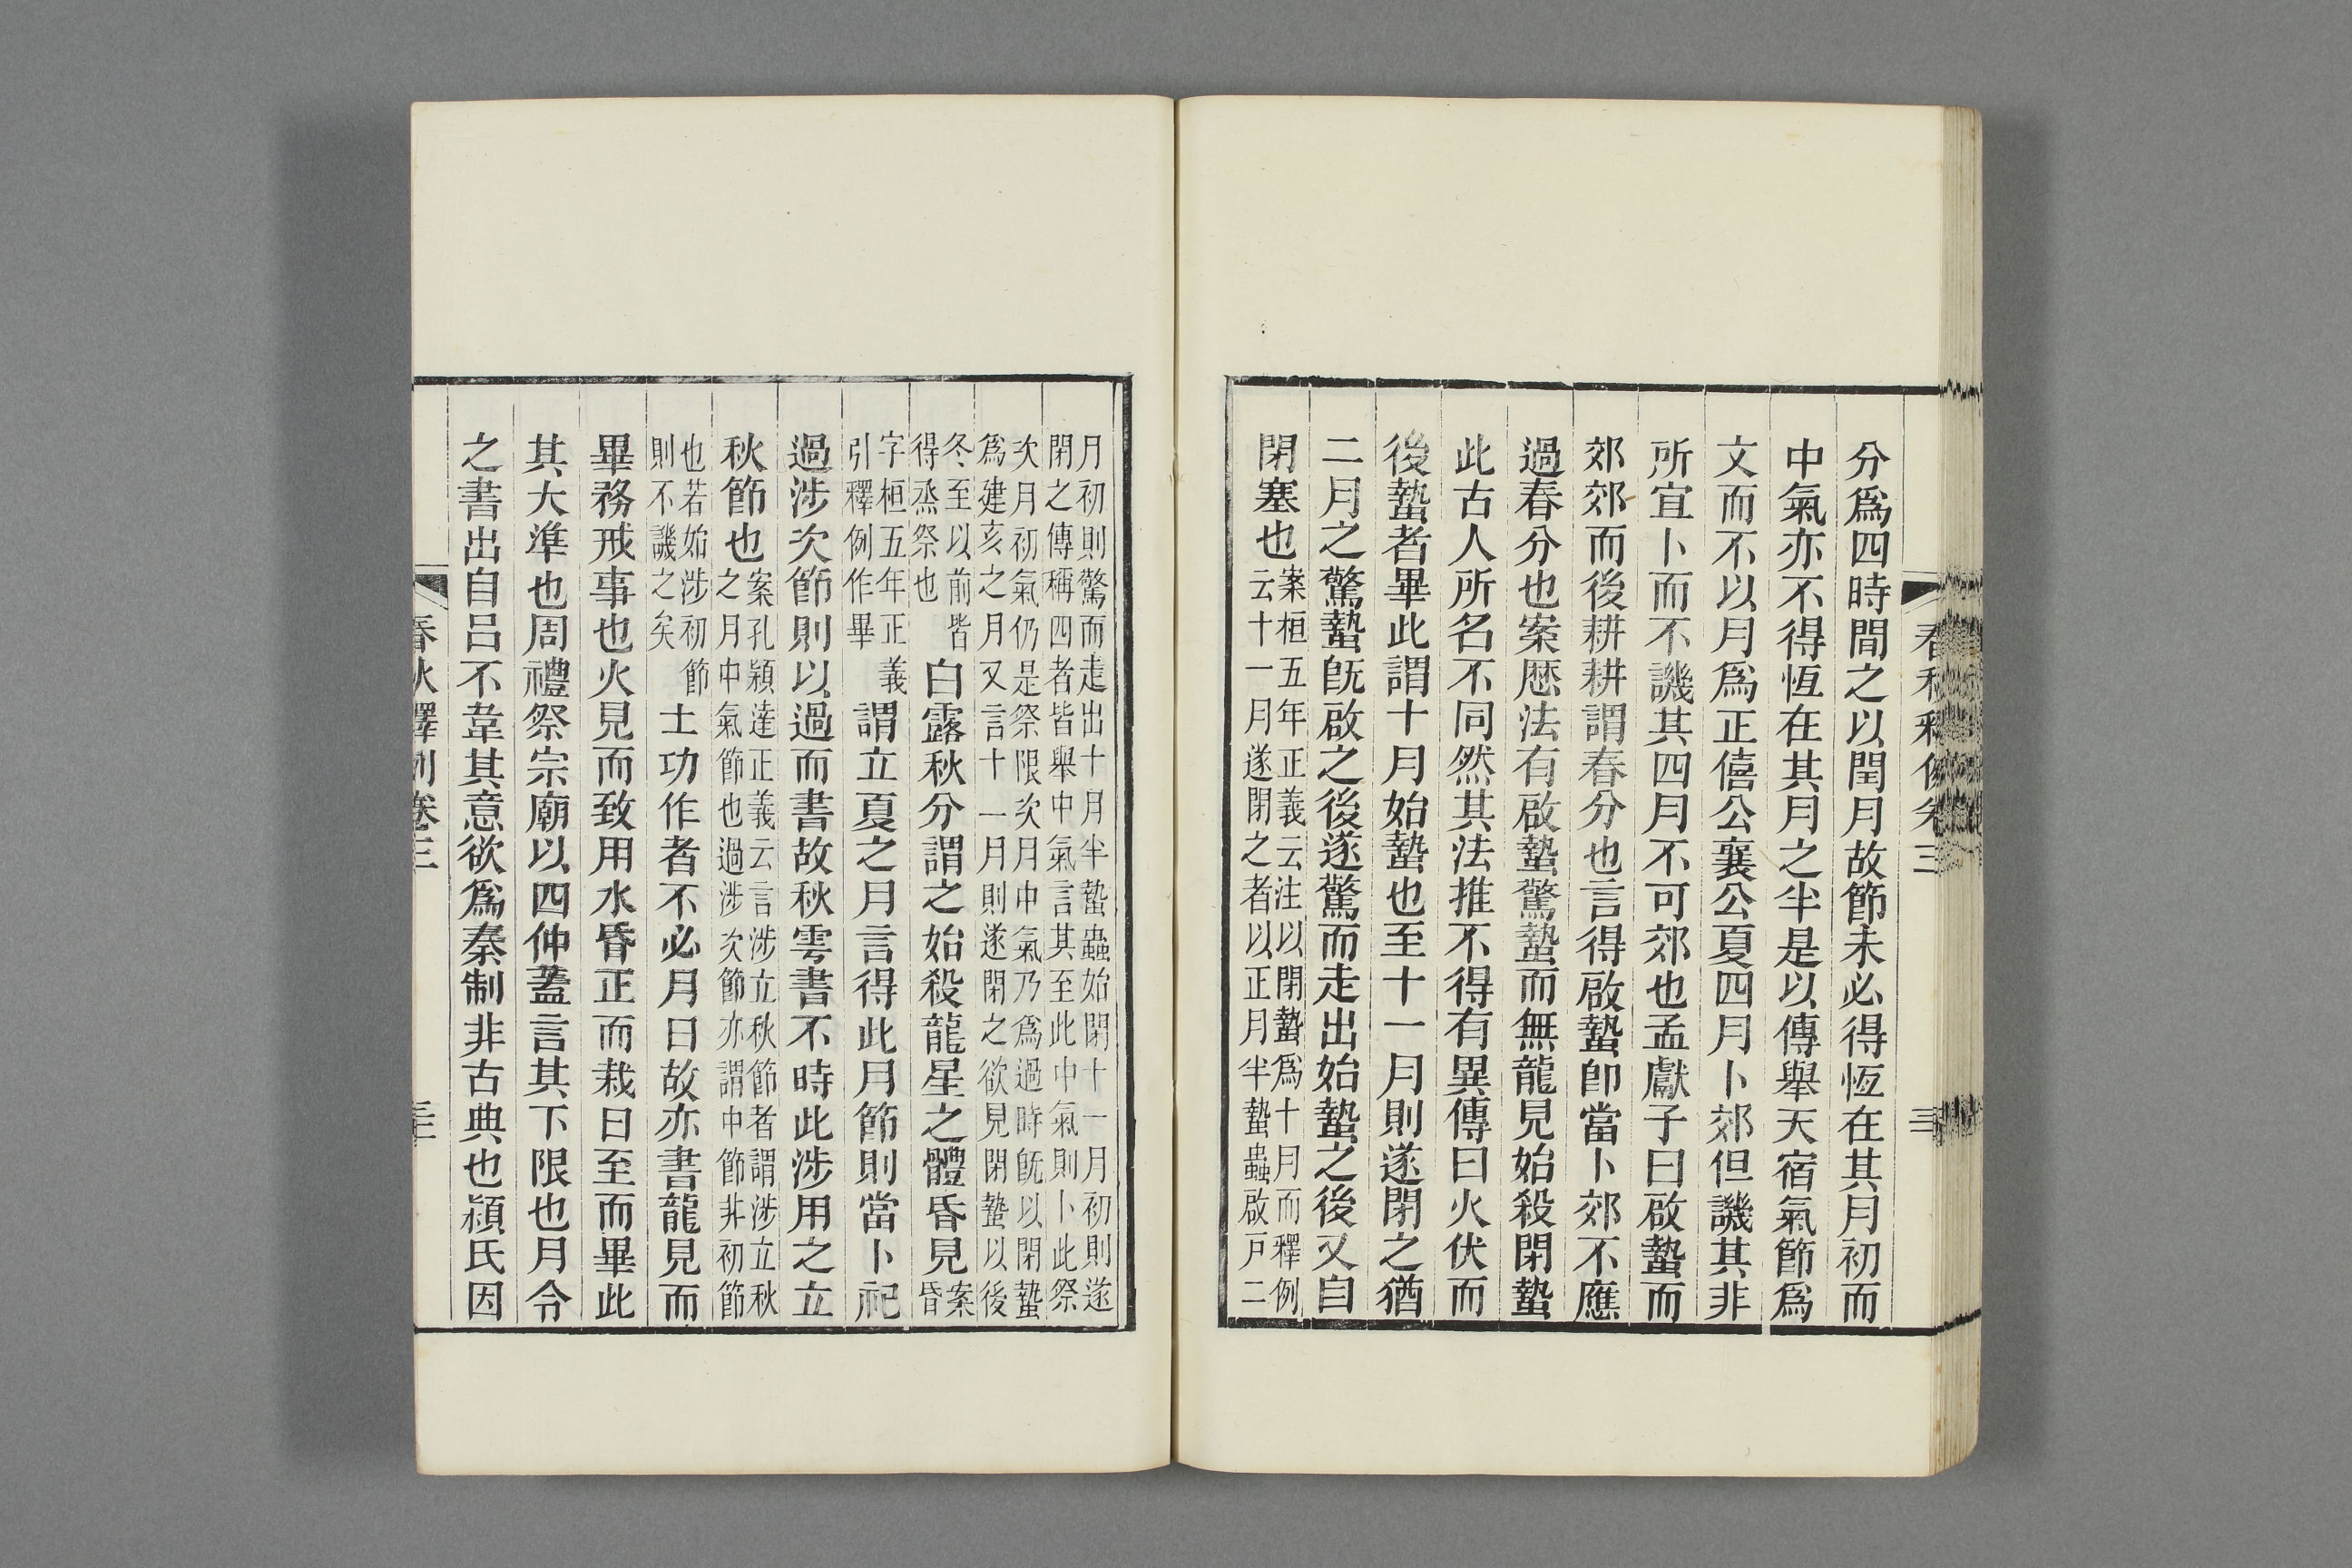 分爲四時間之以閏月故節未必得恆在其月初而
中氣亦不得恆在其月之半是以傳舉天宿氣節爲
文而不以月爲正僖公襄公夏四月卜郊但譏其非
所宜卜而不譏其四月不可郊也孟獻子曰啟蟄而
郊郊而後耕耕謂春分也言得啟蟄卽當卜郊不應
過春分也案厯法有啟蟄驚蟄而無龍見始殺閉蟄
此古人所名不同然其法推不得有異傳曰火伏而
後蟄者畢此謂十月始蟄也至十一月則遂閉之猶
二月之驚蟄旣啟之後遂驚而走出始蟄之後又自
閉塞也
案桓五年正義云注以閉蟄爲十月而釋例
云十一月遂閉之者以正月半蟄蟲啟戸二
月初則驚而走出十月半蟄蟲始閉十一月初則遂
閉之傳稱四者皆舉中氣言其至此中氣則卜此祭
次月初氣仍是祭限次月中氣乃爲過時旣以閉蟄
爲建亥之月又言十一月則遂閉之欲見閉蟄以後
冬至以前皆
得烝祭也
白露秋分謂之始殺龍星之體昏見
案
昏
字桓五年正義
引釋例作畢
謂立夏之月言得此月節則當卜祀
過涉次節則以過而書故秋雩書不時此涉用之立
秋節也
案孔穎達正義云言涉立秋節者謂涉立秋
之月中氣節也過涉次節亦謂中節非初節
也若始涉初節
則不譏之矣
土功作者不必月日故亦書龍見而
畢務戒事也火見而致用水昏正而栽日至而畢此
其大準也周禮祭宗廟以四仲蓋言其下限也月令
之書出自呂不韋其意欲爲秦制非古典也潁氏因
春秋釋例卷三